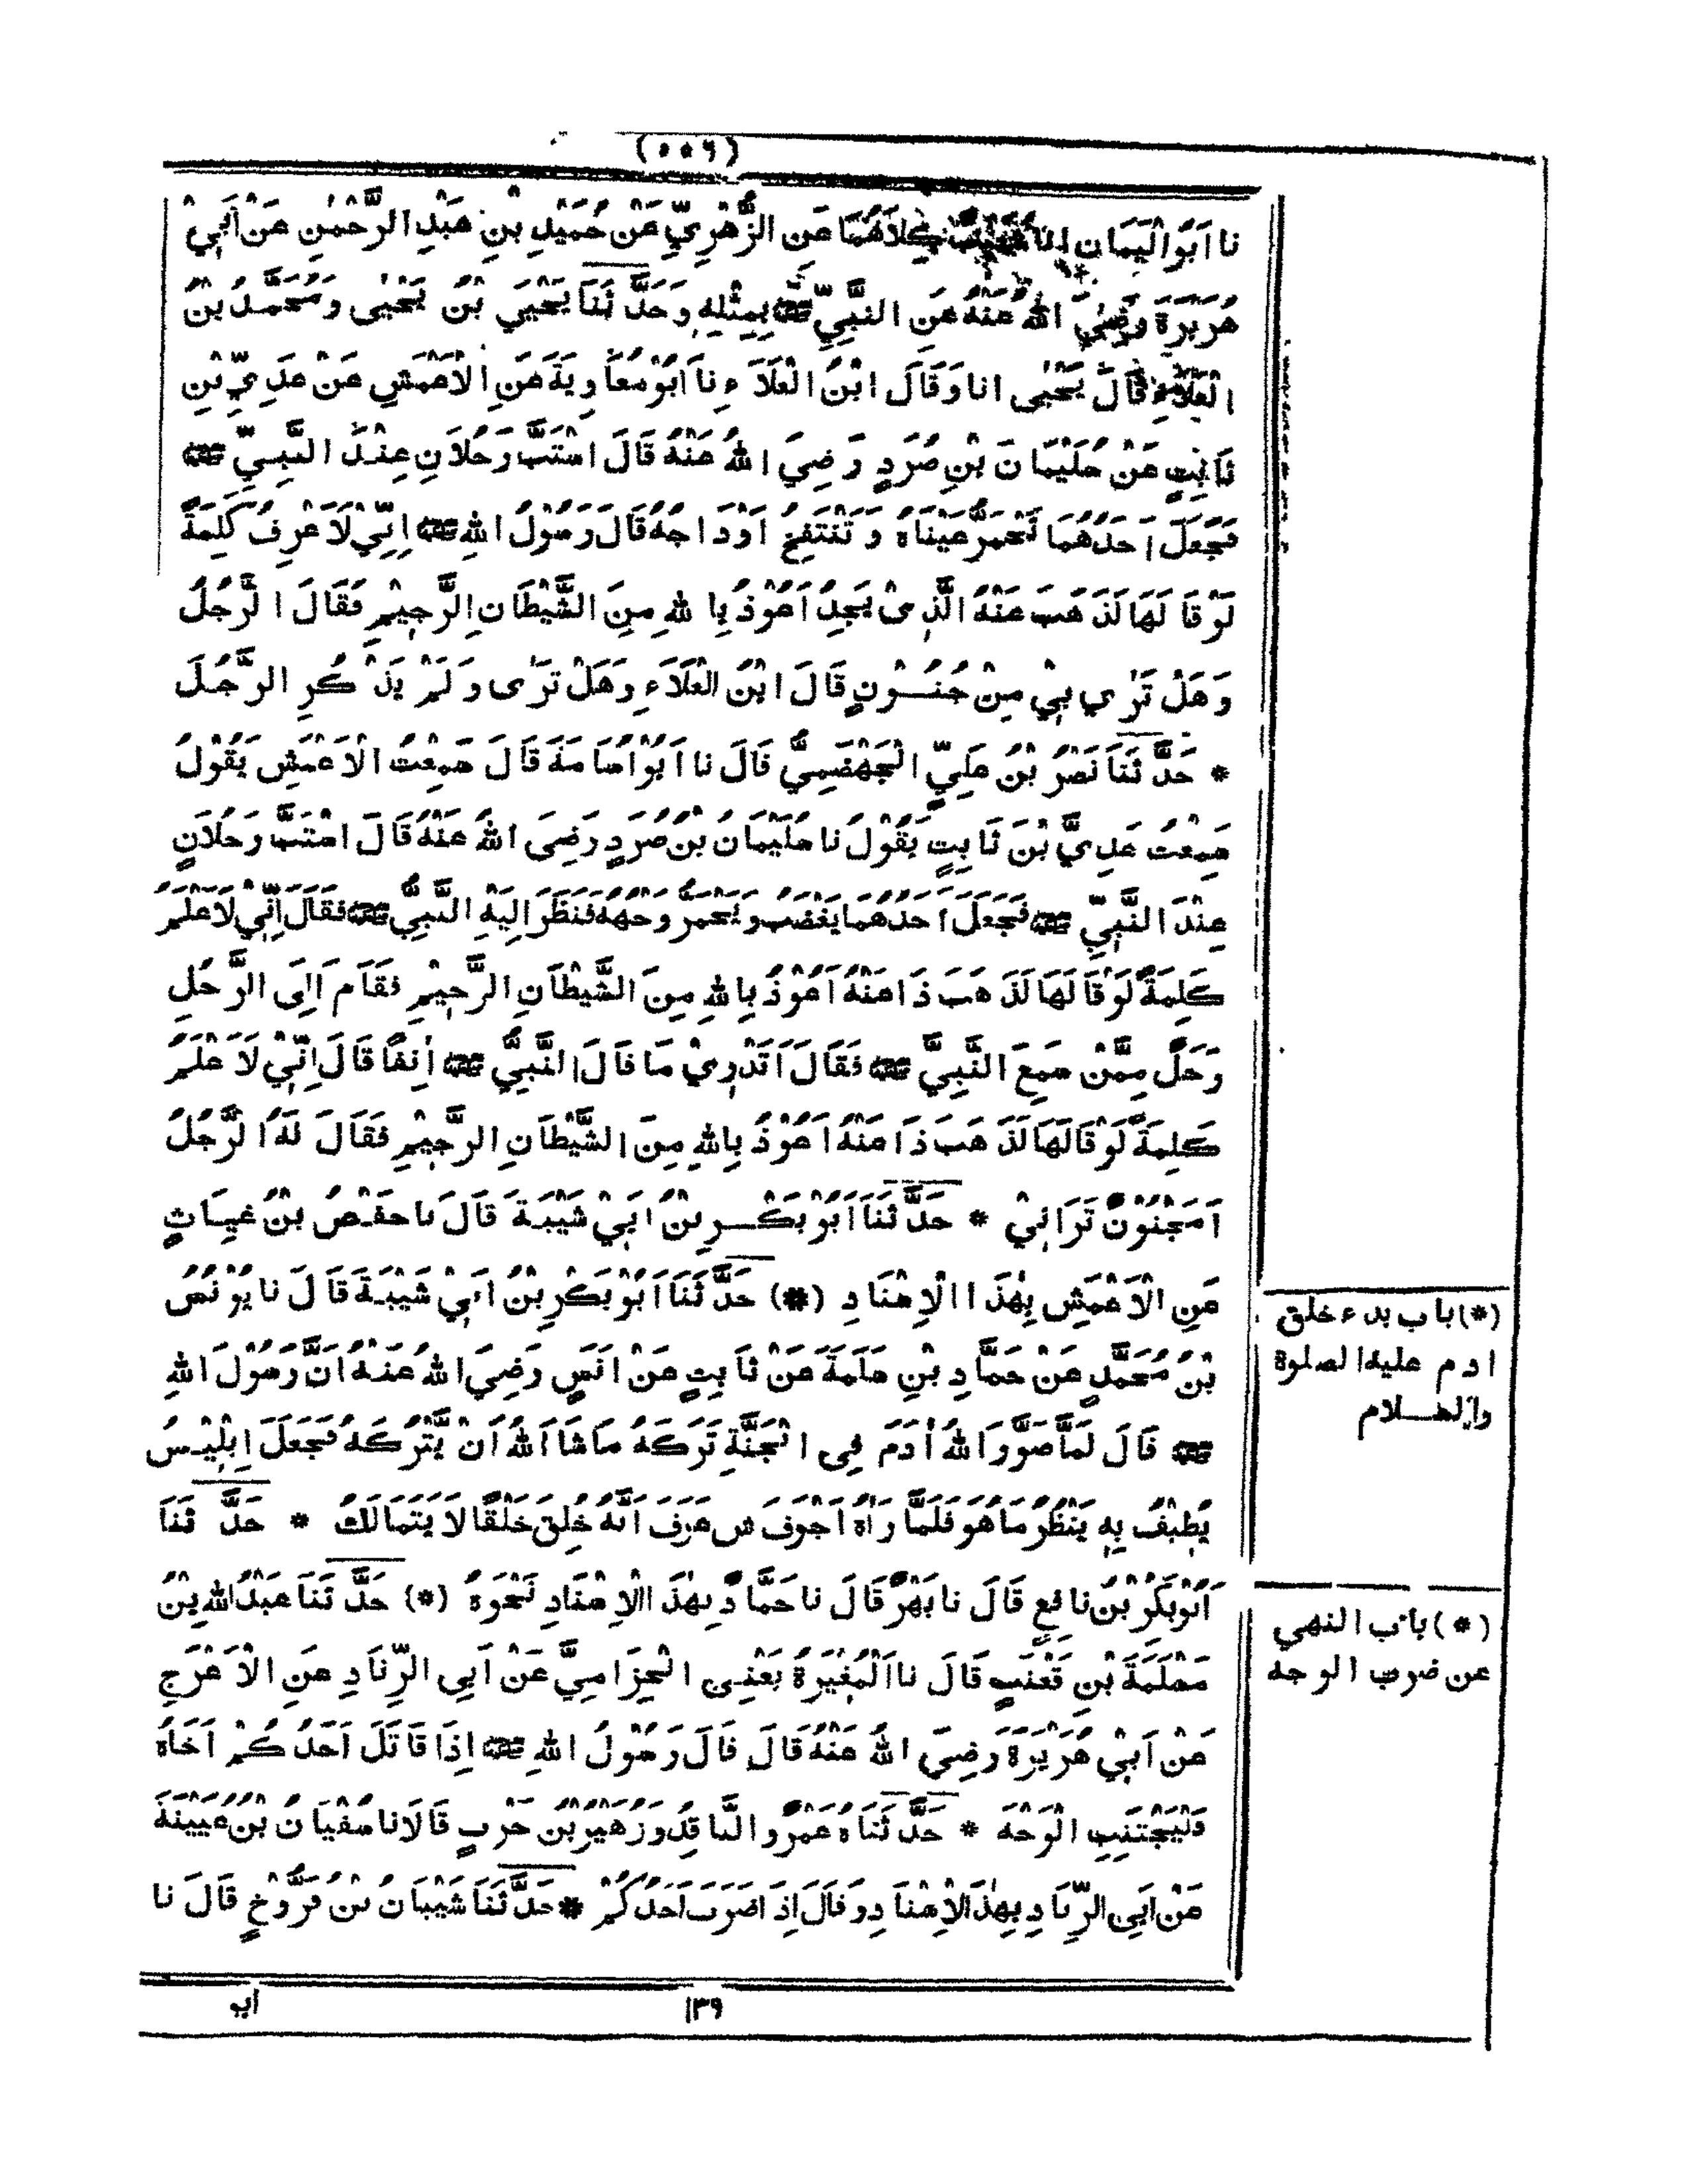 (٥٥٦)
نا اَبُوالْيَمَانِ انا شُعَيْبٌ كِلَاهُمَا عَنِ الزُّهْرِيِّ عَنْ حُمَيْدِ بْنِ عَبْدِ الرَّحْمٰنِ عَنْ اَبِيْ
هُرَيْرَةَ رَضِيَ اللهُ عَنْهُ عَنِ النَّبِيِّ ﷺ بِمِثْلِهِ وَحَدَّ ثَنَا يَحْيَى بْنُ يَحْيٰى وَمُحَمَّدُ بْنُ
الْعَلَاءِ قَالَ يَحْيٰى انا وَقَالَ ابْنُ الْعَلَاَ ءِ نا اَبُوْ مُعَاوِيَةَ عَنِ الْاَعْمَشِ عَنْ عَدِيِّ بْنِ
ثَابِتٍ عَنْ سُلَيْمَا نَ بْنِ صُرَدٍ رَضِيَ اللهُ عَنْهُ قَالَ اسْتَبَّ رَجُلَانِ عِنْدَ النَّبِيِّ ﷺ
فَجَعَلَ اَحَدُهُمَا تَحْمَرُّ عَيْنَاهُ وَ تَنْتَفِخُ اَوْدَاجُهُ قَالَ رَسُوْلُ اللهِ ﷺ اِنِّيْ لَاَعْرِفُ كَلِمَةً
لَوْ قَا لَهَا لَذَ هَبَ عَنْهُ الَّذِىْ يَجِدُ اَعُوْذُ بِا للهِ مِنَ الشَّيْطَانِ الرَّجِيْمِ فَقَالَ الرَّجُلُ
وَهَلْ تَرٰى بِيْ مِنْ جُنُـــوْنٍ قَالَ ابْنُ الْعَلَاَءِ وَهَلْ تَرٰى وَ لَمْ يَذْ كُرِ الرَّجُلَ
* حَدَّ ثَنَا نَصْرُ بْنُ عَلِيٍّ الْجَهْضَمِيُّ قَالَ نا اَبُوْ اُسَا مَةَ قَالَ سَمِعْتُ الْاَعْمَشَ يَقُوْلُ
سَمِعْتُ عَدِيَّ بْنَ ثَا بِتٍ يَقُوْلُ نا سُلَيْمَانُ بْنُ صُرَدٍ رَضِىَ اللهُ عَنْهُ قَالَ اسْتَبَّ رَجُلَانِ
عِنْدَ النَّبِيِّ ﷺ فَجَعَلَ اَحَدُهُمَا يَغْضَبُ وَيَحْمَرُّ وَجْهُهُ فَنَظَرَ اِلَيْهِ النَّبِيُّ ﷺ فَقَالَ اِنِّيْ لَاَعْلَمُ
كَلِمَةً لَوْ قَا لَهَا لَذَ هَبَ ذَا عَنْهُ اَعُوْذُ بِاللهِ مِنَ الشَّيْطَانِ الرَّجِيْمِ فَقَامَ اِلَى الرَّجُلِ
رَجُلٌ مِمَّنْ سَمِعَ النَّبِيَّ ﷺ فَقَالَ اَتَدْرِيْ مَا قَالَ النَّبِيُّ ﷺ اٰنِفًا قَالَ اِنِّيْ لَاَ عْلَمُ
كَلِمَةً لَوْ قَالَهَا لَذَ هَبَ ذَا عَنْهُ اَعُوْذُ بِاللهِ مِنَ الشَّيْطَانِ الرَّجِيْمِ فَقَالَ لَهُ الرَّجُلُ
اَمَجْنُوْنٌ تَرَانِيْ * حَدَّ ثَنَا اَبُوْ بَكْـــرِ بْنُ اَبِيْ شَيْبَةَ قَالَ نا حَفْصُ بْنُ غِيَاثٍ
عَنِ الْاَعْمَشِ بِهٰذَا الْاِسْنَا دِ (*) حَدَّ ثَنَا اَبُوْ بَكْرِ بْنُ اَبِيْ شَيْبَةَ قَا لَ نا يُوْنُسُ
بْنُ مُحَمَّدٍ عَنْ حَمَّا دِ بْنِ سَلَمَةَ عَنْ ثَا بِتٍ عَنْ اَنَسٍ رَضِيَ اللهُ عَنْهُ اَنَّ رَسُوْلَ اللهِ
ﷺ قَالَ لَمَّا صَوَّرَ اللهُ اٰدَمَ فِى الْجَنَّةِ تَرَكَهُ مَا شَا اللهُ اَنْ يَّتْرُكَهُ فَجَعَلَ اِبْلِيْسُ
يُطِيْفُ بِهٖ يَنْظُرُ مَا هُوَ فَلَمَّا رَاٰهُ اَجْوَفَ عَرَفَ اَنَّهُ خُلِقَ خَلْقًا لَا يَتَمَالَكُ * حَدَّ ثَنَا
اَبُوْبَكْرِ بْنُ نافِعٍ قَالَ نا بَهْزٌ قَالَ نا حَمَّادٌ بِهٰذَ االْاِسْنَادِ نَحْوَهُ (*) حَدَّ ثَنَا عَبْدُ اللهِ بْنُ
مَسْلَمَةَ بْنِ قَعْنَبٍ قَالَ نا الْمُغِيْرَةُ يَعْنِى الْحِزَامِيَّ عَنْ اَبِى الزِّنَادِ عَنِ الْاَعْرَجِ
عَنْ اَبِيْ هُرَيْرَةَ رَضِيَ اللهُ عَنْهُ قَالَ قَالَ رَسُوْلُ اللهِ ﷺ اِذَا قَاتَلَ اَحَدُ كُمْ اَخَاهُ
فَلْيَجْتَنِبِ الْوَجْهَ * حَدَّ ثَنَاهُ عَمْرٌو النَّاقِدُ وَزُهَيْرُ بْنُ حَرْبٍ قَالَا نا سُفْيَانُ بْنُ عُيَيْنَةَ
عَنْ اَبِى الزِّنَا دِ بِهٰذَ الْاِسْنَا دِ وَقَالَ اِذَ اضَرَبَ اَحَدُ كُمْ * حَدَّ ثَنَا شَيْبَانُ بْنُ فَرُّوْخٍ قَالَ نا
(*) با ب بد ء خلق
ا د م عليه الصلوة
والســـلام
(*) باب النهي
عن ضرب الوجه
١٣٩
ابو